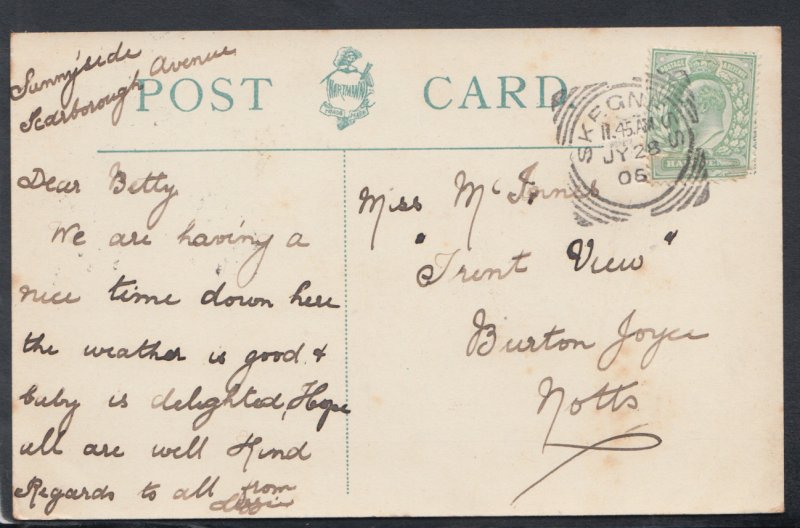 Sunnyside
Scarborough Avenue
POST CARD
HARTMANN
SKEGNESS
11.45 AM
JY 28
06
Dear Betty
We are having a
nice time down here
the weather is good &
baby is delighted, Hope
all are well Kind
Regards to all from
Miss McInnes
"Trent View"
Burton Joyce
Notts